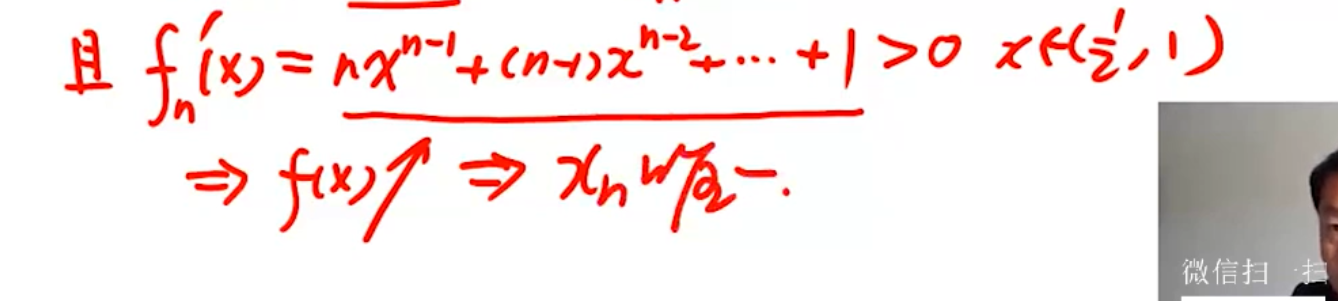 且 fₙ′(x) = nxⁿ⁻¹ + (n-1)xⁿ⁻² + ⋯ + 1 > 0 x∈(½, 1)
⇒ f(x)↗ ⇒ xₙ 唯一.
微信扫一扫